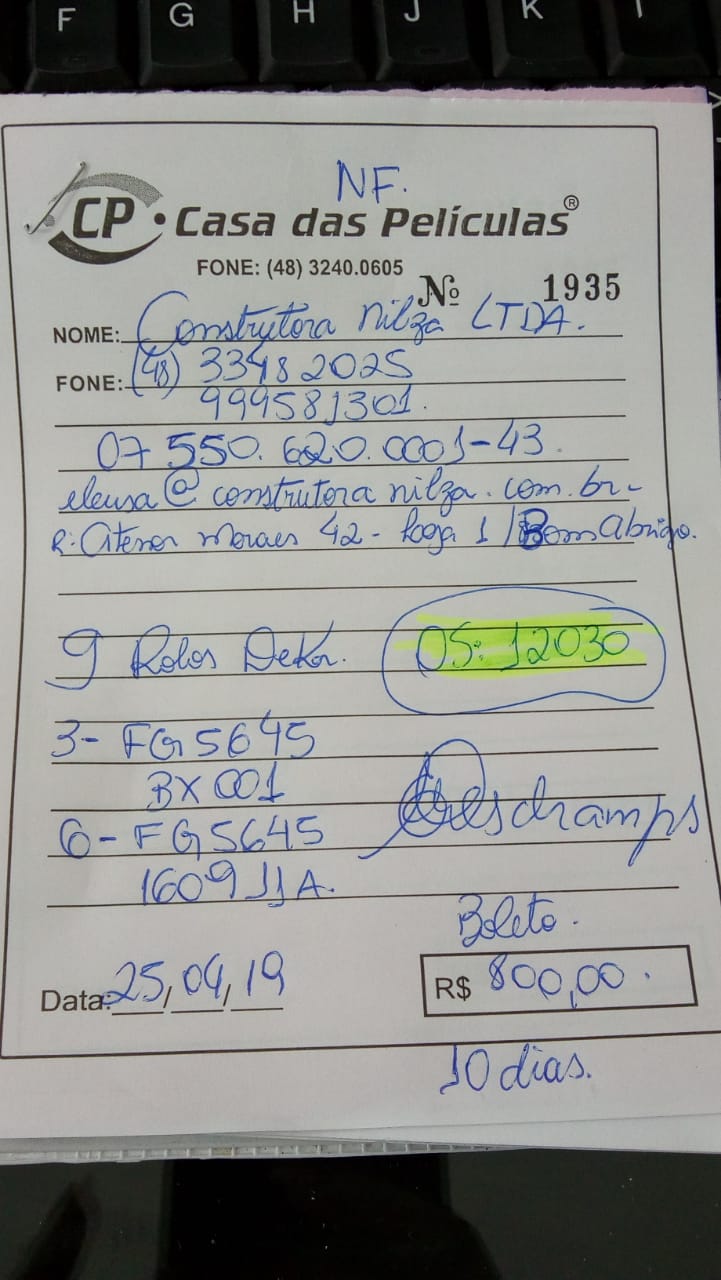 F G H J K
NF.
CP • Casa das Películas ®
FONE: (48) 3240.0605
Nº 1935
NOME: Construtora Nilza LTDA.
FONE: (48) 33482025
999581301.
07 550.620.0001-43.
eleusa@construtoranilza.com.br-
R: Atenor Moraes 42 - loga 1 / Bom Abrigo.
9 Rolos Dekor. OS: 12030
3- FG5645
BX 001
6- FG5645
1609 JJA.
Deschamps
Boleto.
Data: 25/04/19
R$ 800,00.
10 dias.